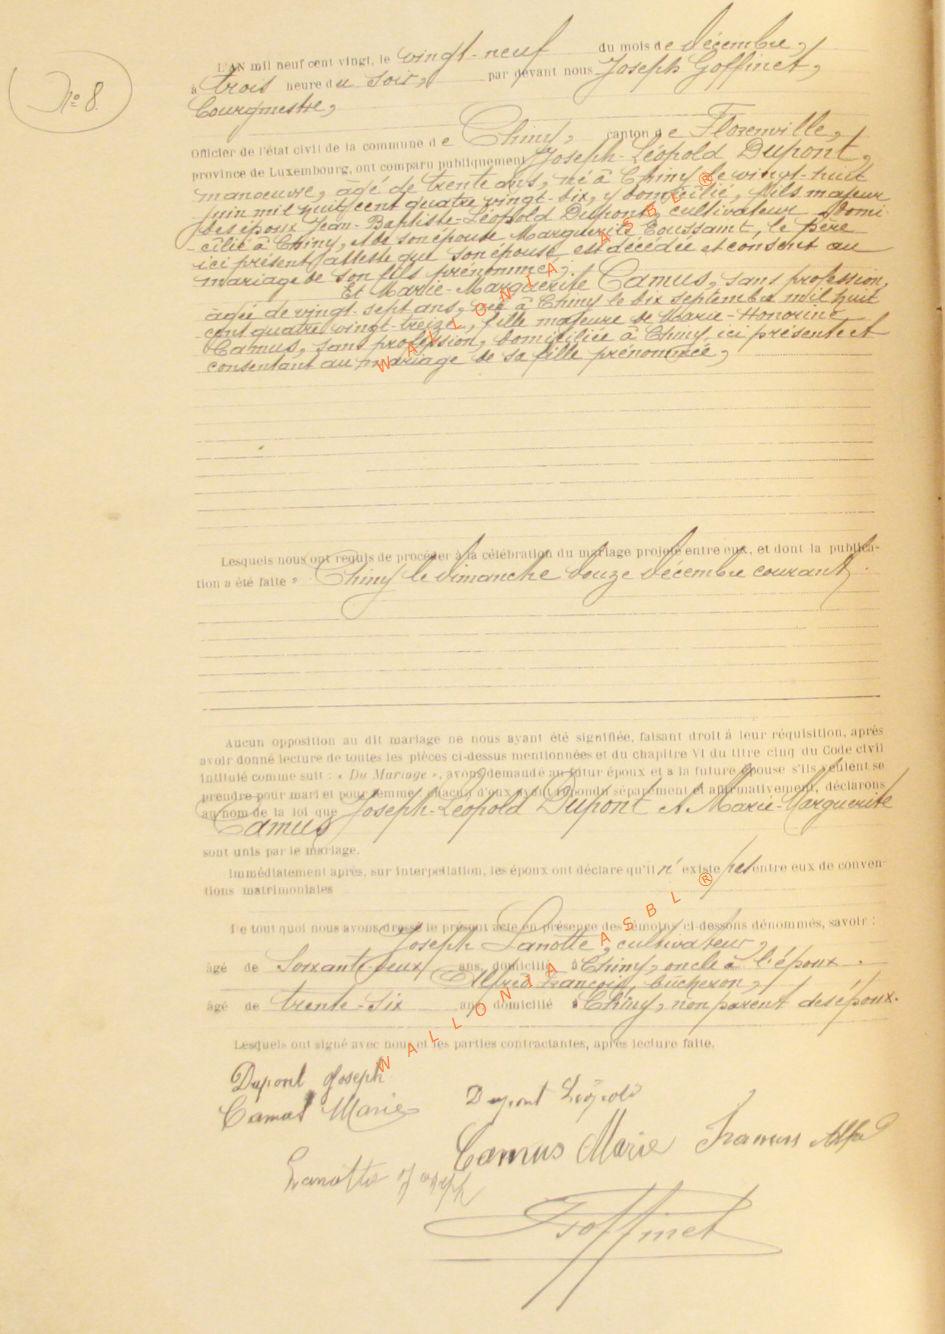 N° 8.
L'AN mil neuf cent vingt, le vingt-neuf du mois de décembre,
à trois heure du soir, par devant nous Joseph Goffinet,
Bourgmestre,
Officier de l'état civil de la commune de Chiny, canton de Florenville,
province de Luxembourg, ont comparu publiquement Joseph-Léopold Dupont,
manoeuvre, âgé de trente ans, né à Chiny le vingt-huit
juin mil huit cent quatre vingt-dix, y domicilié, fils majeur
des époux Jean-Baptiste-Léopold Dupont, cultivateur domi-
cilié à Chiny, et de son épouse Marguerite Toussaint, le père
ici présent atteste que son épouse est décédée et consent au
mariage de son fils prénommé;
Et Marie-Marguerite Camus, sans profession,
âgée de vingt-sept ans, née à Chiny le dix septembre mil huit
cent quatre vingt-treize, fille majeure de Marie-Honorine
Camus, sans profession, domiciliée à Chiny, ici présente et
consentant au mariage de sa fille prénommée,
Lesquels nous ont requis de procéder à la célébration du mariage projeté entre eux, et dont la publica-
tion a été faite à Chiny le dimanche douze décembre courant.
Aucun opposition au dit mariage ne nous ayant été signifiée, faisant droit à leur réquisition, après
avoir donné lecture de toutes les pièces ci-dessus mentionnées et du chapitre VI du titre cinq du Code civil
intitulé comme suit : « Du Mariage », avons demandé au futur époux et a la future épouse s'ils veulent se
prendre pour mari et pour femme chacun d'eux ayant répondu séparément et affirmativement, déclarons
au nom de la loi que Joseph-Léopold Dupont et Marie-Marguerite
Camus
sont unis par le mariage.
Immédiatement après, sur interpellation, les époux ont déclaré qu'il n'existe pas entre eux de conven-
tions matrimoniales
De tout quoi nous avons dressé le présent acte en présence des témoins ci-dessons dénommés, savoir :
Joseph Lanotte, cultivateur,
âgé de Soixante-deux ans, domicilié à Chiny, oncle à l'époux.
Alfred François, bucheron,
âgé de trente-six ans domicilié à Chiny, non parent des époux.
Lesquels ont signé avec nous et les parties contractantes, après lecture faite.
Dupont Joseph
Camus Marie
Dupont Léopold
Camus Marie
Lanotte Joseph
Goffinet
WALLONIA ASBL ®
WALLONIA ASBL ®